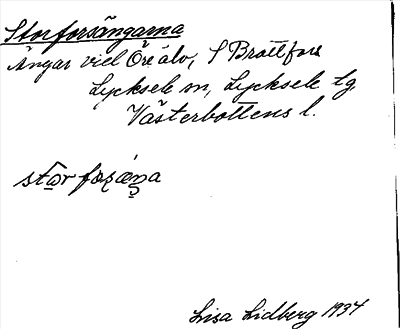 Storforsängarna
Ängar vid Öre älv, S Brattfors
Lycksele sn, Lycksele tg
Västerbottens l.
Lisa Lidberg 1934